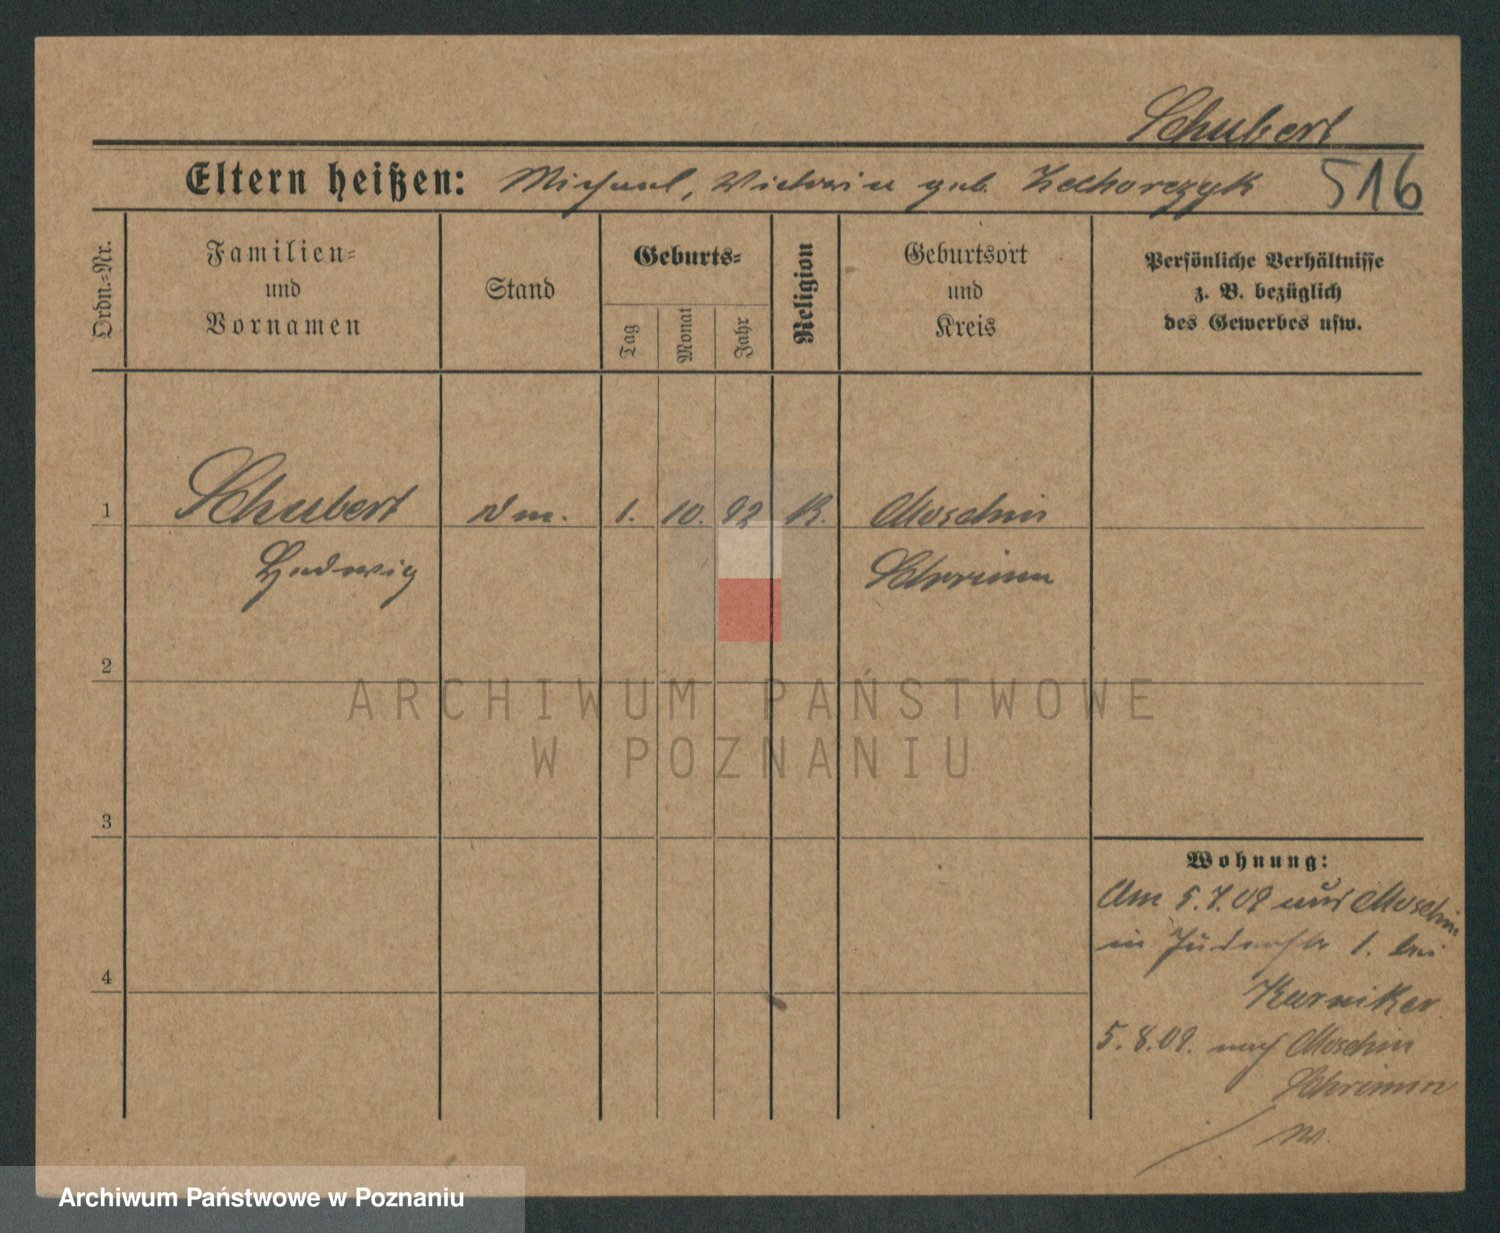 Schubert
Eltern heißen: Michael, Victoria geb. Zechorczyk 516
Ordn.-Nr.
Familien-
und
Vornamen
Stand
Geburts-
Tag
Monat
Jahr
Religion
Geburtsort
und
Kreis
Persönliche Verhältnisse
z. B. bezüglich
des Gewerbes usw.
1 Schubert 1. 10. 92 K. Moschin
Hedwig Schrimm
2
ARCHIWUM PAŃSTWOWE
W POZNANIU
3
Wohnung:
Am 5.7.09 aus Moschin
in 1. bei
Karniker
4
5.8.09. nach Moschin
Schrimm
Archiwum Państwowe w Poznaniu